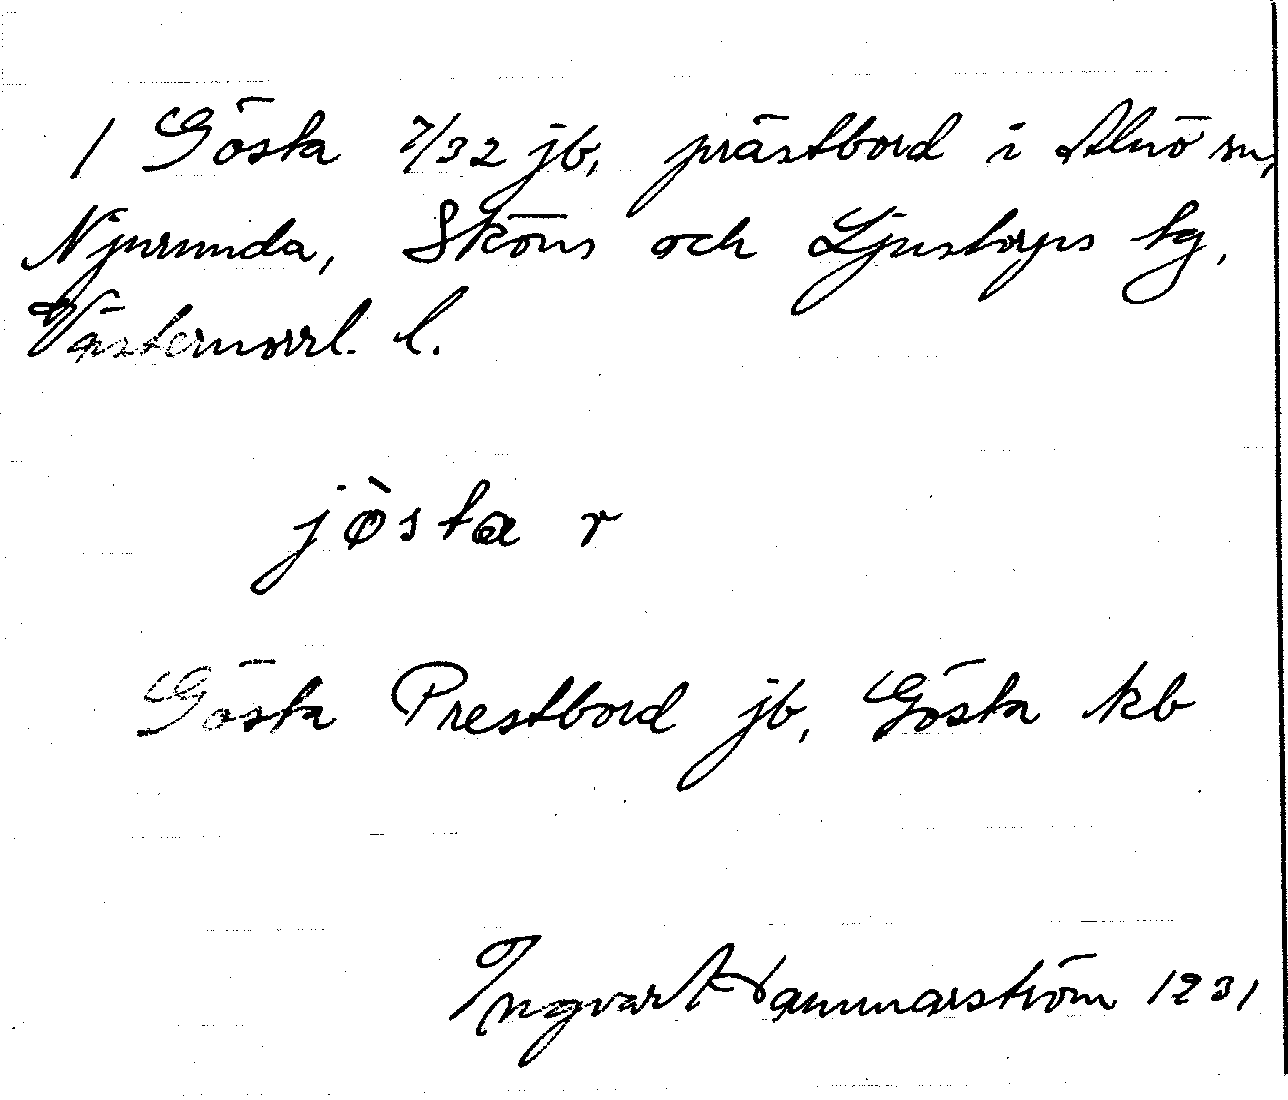 1 Gösta 7/32 jb, prästbord i Alnö sn,
Njurunda, Sköns och Ljustorps tg,
Västernorrl. l.
jòsta r
Gösta Prestbord jb, Gösta kb
Ingvar Hammarström 1931